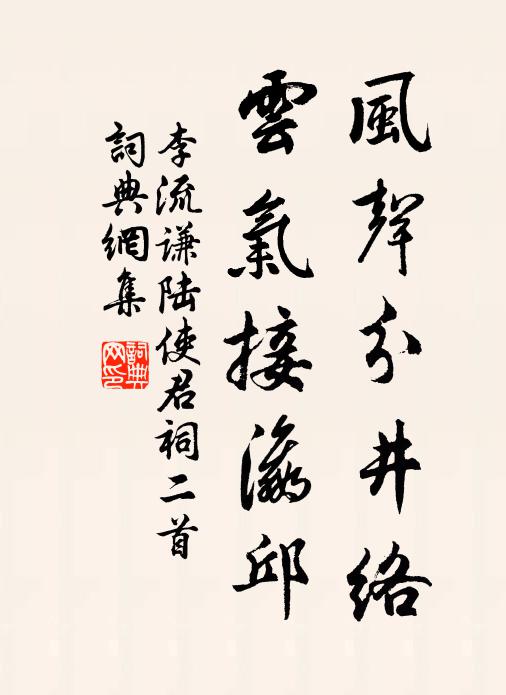 風聲分井絡
雲氣接瀛邱
李流谦陆使君祠二首
詞典網集
詞典网印